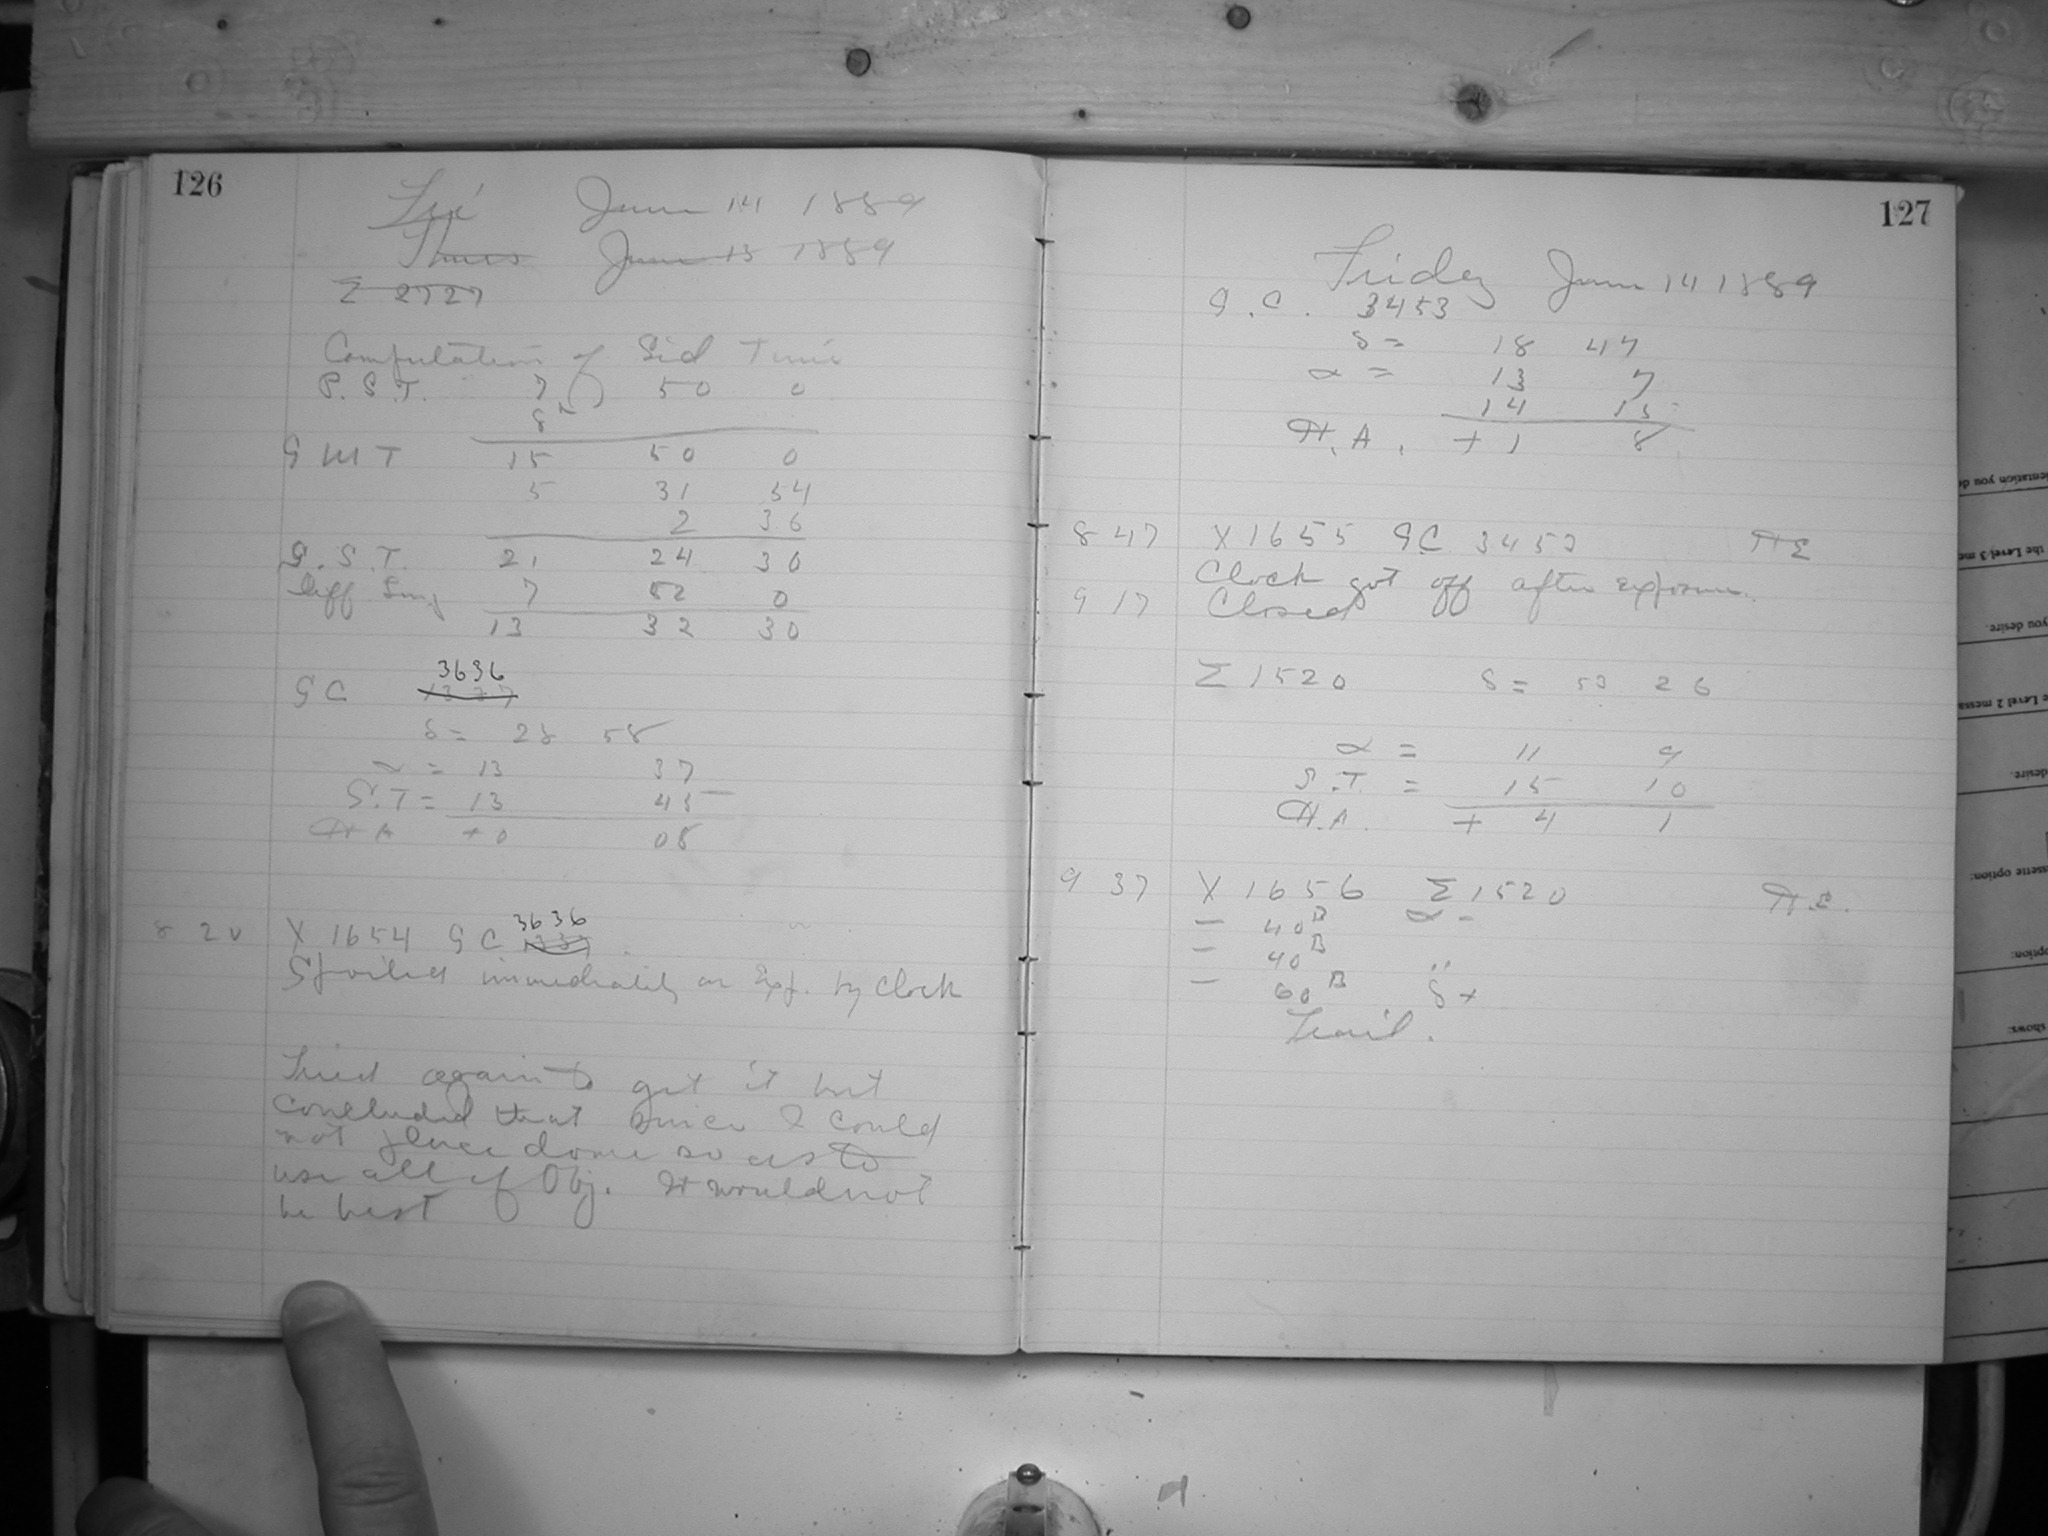 126
Fri June 14 1889
Thurs June 13 1889
Σ 2727
Computation of Sid Time
P.S.T. 7 50 0
8
G M T 15 50 0
5 31 54
2 36
G.S.T. 21 24 30
Diff Long 7 52 0
13 32 30
3636
G C
δ = 28 58
α = 13 37
S.T = 13 45
H A + 0 08
3636
8 20 X 1654 G C
Spoiled immediately on Exp. by Clock
Tried again to get it but
concluded that since I could
not place dome so as to
use all of Obj. It would not
be best
127
Friday June 14 1889
G.C. 3453
δ = 18 47
α = 13 7
14 15
H.A. + 1 8
8 47 X 1655 G.C. 3453
Clock got off after exposure.
9 17 Closed
Σ 1520 δ = 53 26
α = 11 9
S.T. = 15 10
H.A. + 4 1
9 37 X 1656 Σ 1520
— 40 B α -
— 40 B
— 60 B δ +
Trail.